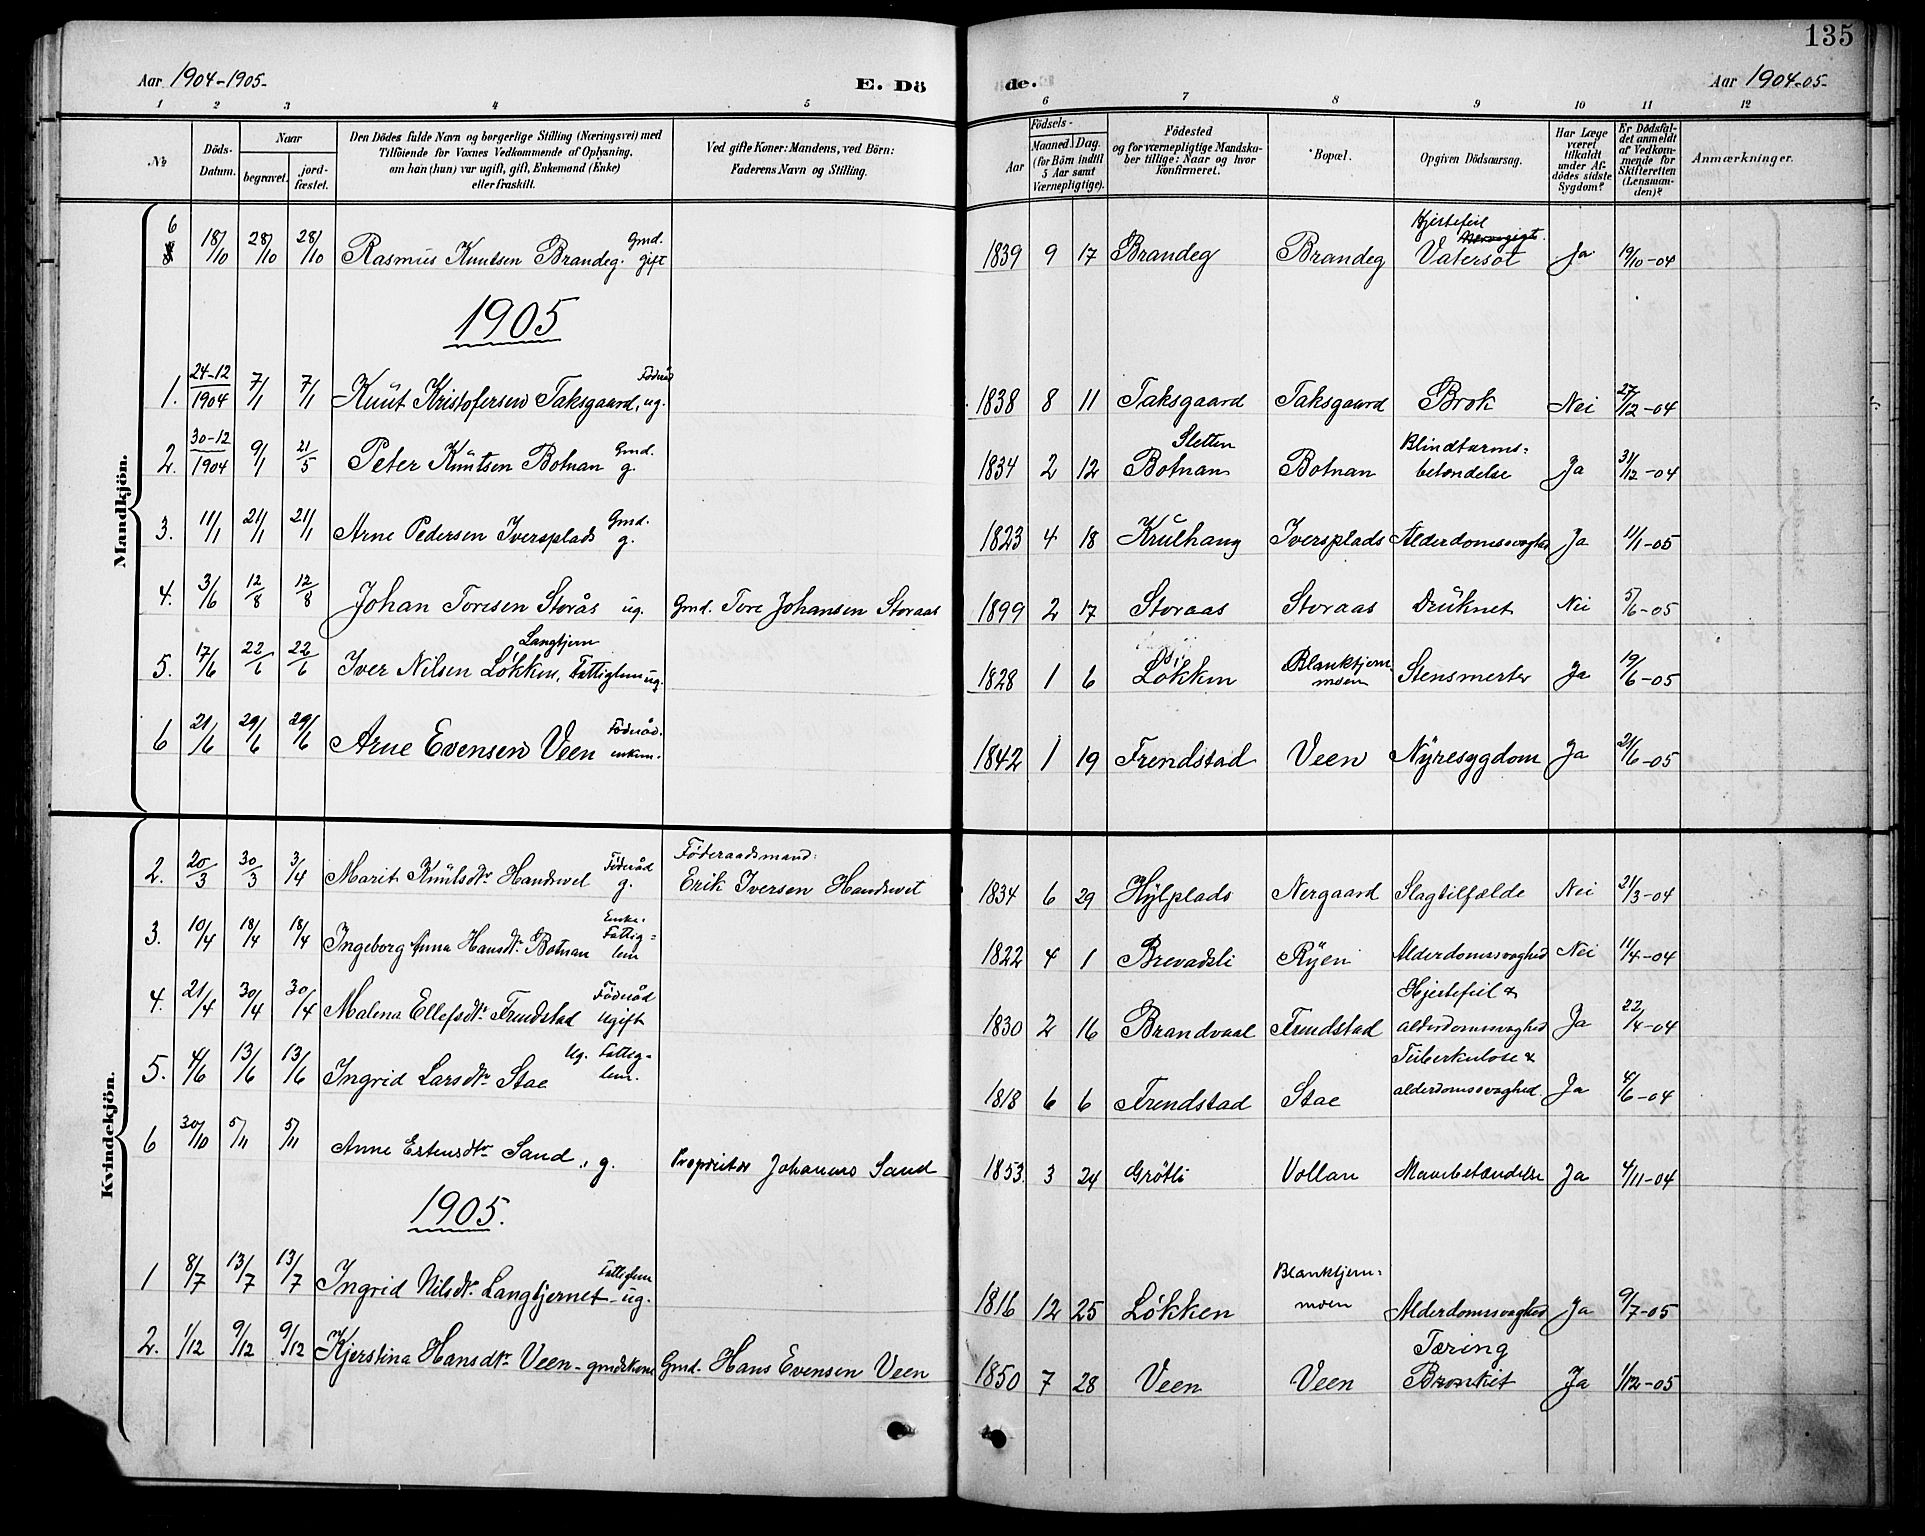 135
Aar 1904-1905- E. Dö de. Aar 1904-05-
1 2 3 4 5 6 7 8 9 10 11 12
No
Döds-
Datum.
Naar
begravet.
jord-
fæstet.
Den Dödes fulde Navn og borgerlige Stilling (Næringsvei) med
Tilföiende for Voxnes Vedkommende af Oplysning,
om han (hun) var ugift, gift, Enkemand (Enke)
eller fraskilt.
Ved gifte Koner: Mandens, ved Börn:
Faderens Navn og Stilling.
Födsels-
Aar
Maaned. Dag.
(for Börn indtil
5 Aar samt
Værnepligtige).
Födested
og for værnepligtige Mandska-
ber tillige: Naar og hvor
konfirmeret.
Bopæl.
Opgiven Dödsaarsag.
Har Læge
været
tilkaldt
under Af-
dödes sidste
Sygdom?
Er Dödsfal-
det anmeldt
af Vedkom-
mende for
Skifteretten
(Lensman-
den)?
Anmærkninger.
Mandkjön.
6 18/10 28/10 28/10 Rasmus Knutsen Brandeg. Gmd. gift 1839 9 17 Brandeg Brandeg Hjertefeil Vatersot Ja 19/10-04
1905
1. 24-12 1904 7/1 7/1 Knut Kristofersen Taksgaard, Föderåd ug. 1838 8 11 Taksgaard Taksgaard Brok Nei 27/12-04
2. 30-12 1904 9/1 21/5 Peter Knutsen Botnan Gmd. g. 1834 2 12 Sletten Botnan Botnan Blindtarms- betændelse Ja 31/12-04
3. 11/1 21/1 21/1 Arne Pedersen Iversplads Gmd. g. 1823 4 18 Krulhaug Iversplads Alderdomssvaghed Ja 11/1-05
4. 3/6 12/8 12/8 Johan Toresen Storås ug. Gmd. Tore Johansen Storaas 1899 2 17 Storaas Storaas Druknet Nei 5/6-05
5. 17/6 22/6 22/6 Iver Nilsen Løkken, Langtjern Fattiglem ug. 1828 1 6 Løkken Blanktjern- moen Stensmerter Ja 19/6-05
6 21/6 29/6 29/6 Arne Evensen Veen Föderåd. enkem. 1842 1 19 Frendstad Veen Nyresygdom Ja 21/6-05
Kvindekjön.
2. 20/3 30/3 3/4 Marit Knutsdtr Handevet Föderåd g. Föderaadsmand: Erik Iversen Handevet 1834 6 29 Hylplads Nergaard Slagtilfælde Nei 21/3-04
3. 10/4 18/4 18/4 Ingeborg Anna Hansdtr Botnan Enke. Fattig- lem 1822 4 1 Brevadsli Ryen Alderdomssvaghed Nei 11/4-04
4. 21/4 30/4 30/4 Malena Ellefsdtr Frendstad Föderåd Ugift 1830 2 16 Brandvaal Frendstad Hjertefeil & alderdomssvaghed Ja 22/4-04
5. 4/6 13/6 13/6 Ingrid Larsdtr Stae Ug. Fattig- lem. 1818 6 6 Frendstad Stae Tuberkulose & alderdomssvaghed Ja 4/6-04
6 30/10 5/11 5/11 Anne Estensdtr Sand, g. Proprietær Johannes Sand 1853. 3 24 Grøtli Vollan Mavebetændelse Ja 4/11-04
1905.
1 8/7 13/7 13/7 Ingrid Nilsdtr Langtjernet Fattiglem ug. 1816 12 25 Løkken Blanktjern- moen Alderdomssvaghed Ja 9/7-05
2. 1/12 9/12 9/12 Kjerstina Hansdtr Veen - gmdskone Gmd. Hans Evensen Veen 1850 7 28 Veen Veen Tæring Bronkit Ja 1/12-05